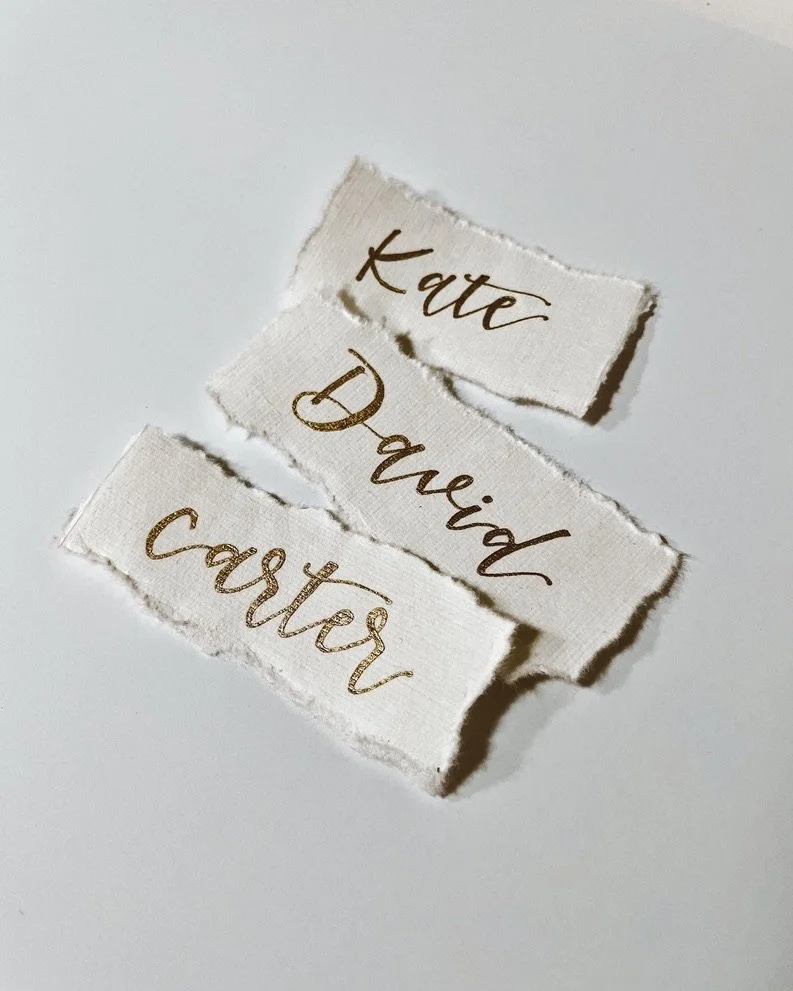 Kate
David
carter